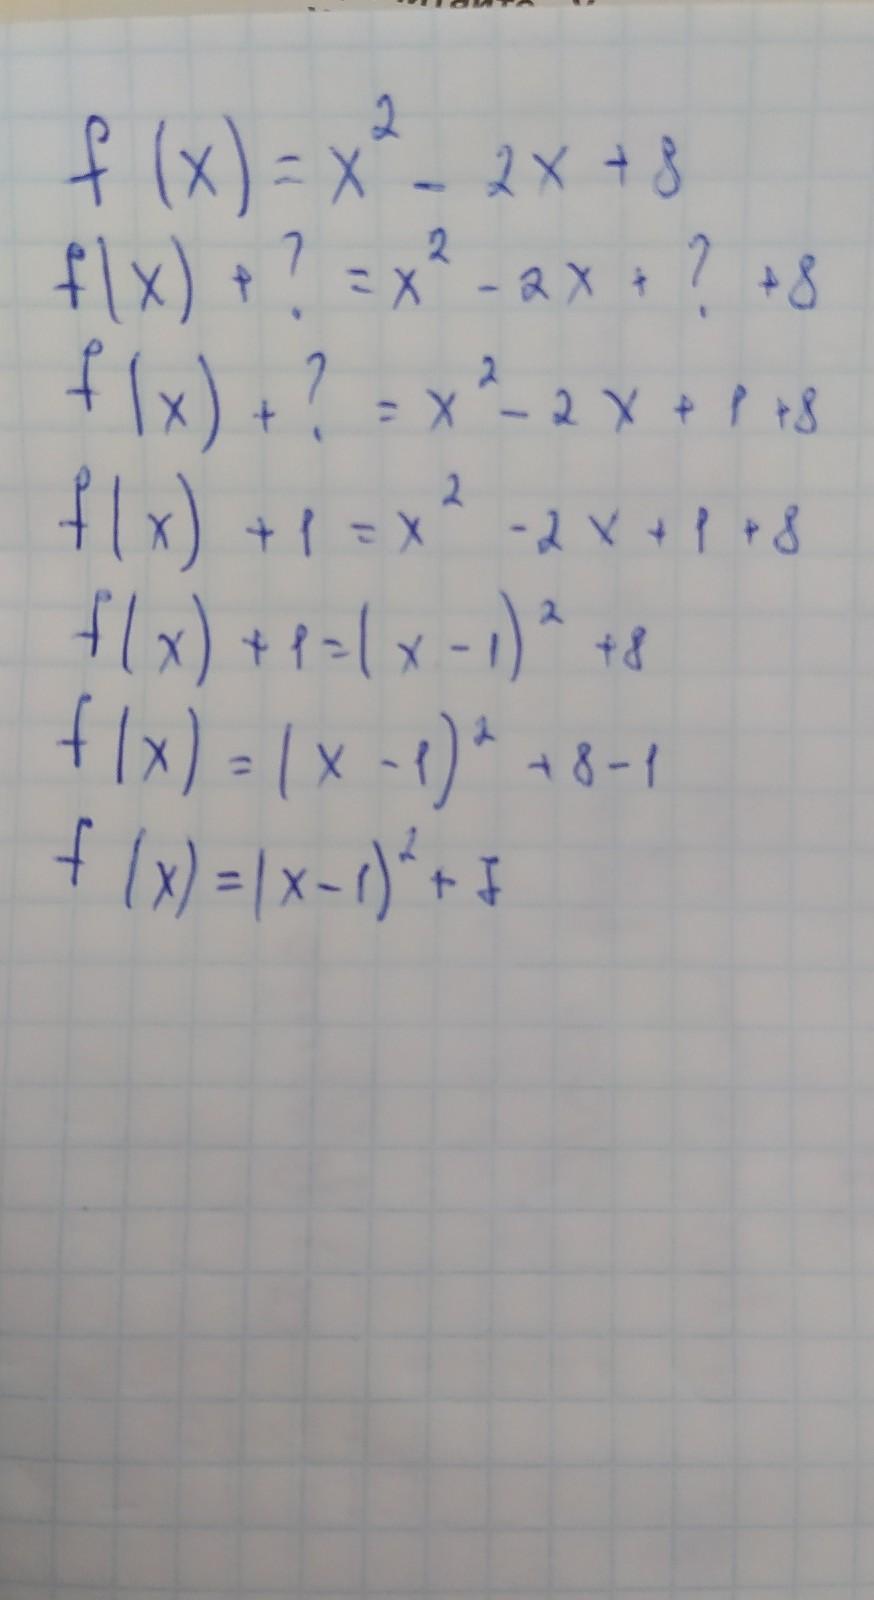 f(x) = x² - 2x + 8
f(x) + ? = x² - 2x + ? + 8
f(x) + ? = x² - 2x + 1 + 8
f(x) + 1 = x² - 2x + 1 + 8
f(x) + 1 = (x - 1)² + 8
f(x) = (x - 1)² + 8 - 1
f(x) = (x - 1)² + 7